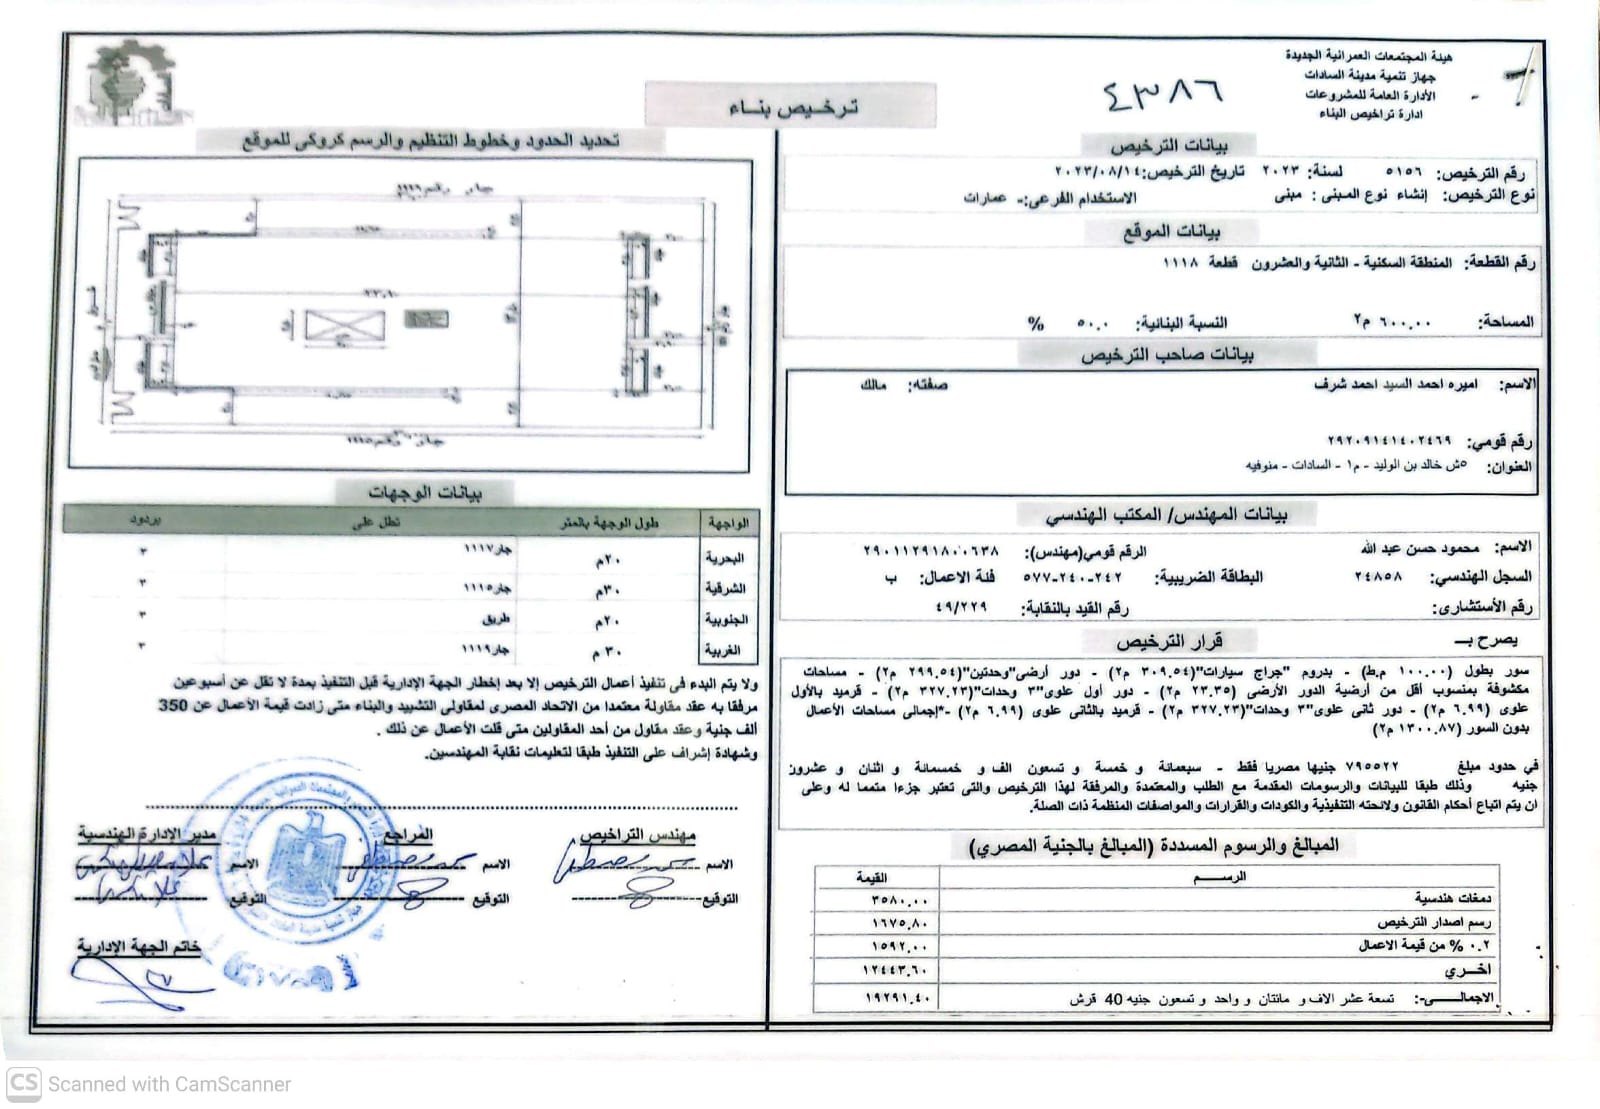 هيئة المجتمعات العمرانية الجديدة
جهاز تنمية مدينة السادات
الأدارة العامة للمشروعات
ادارة تراخيص البناء
٤٣٨٦
ترخيص بناء
بيانات الترخيص
رقم الترخيص: ٥١٥٦ لسنة: ٢٠٢٣ تاريخ الترخيص: ٢٠٢٣/٠٨/١٤
نوع الترخيص: إنشاء نوع المبنى : مبنى الاستخدام الفرعى:- عمارات
بيانات الموقع
رقم القطعة: المنطقة السكنية - الثانية والعشرون قطعة ١١١٨
المساحة: ٦٠٠.٠٠ م٢ النسبة البنائية: ٥٠.٠ %
بيانات صاحب الترخيص
الاسم: اميره احمد السيد احمد شرف صفته: مالك
رقم قومي: ٢٩٢٠٩١٤١٤٠٢٤٦٩
العنوان: ٥ش خالد بن الوليد - م١ - السادات - منوفيه
بيانات المهندس/ المكتب الهندسي
الاسم: محمود حسن عبد الله الرقم قومي(مهندس): ٢٩٠١١٢٩١٨٠٠٦٣٨
السجل الهندسي: ٢٤٨٥٨ البطاقة الضريبية: ٢٤٢-٢٤٠-٥٧٧ فئة الاعمال: ب
رقم الأستشارى: رقم القيد بالنقابة: ٤٩/٢٢٩
يصرح بـــ قرار الترخيص
سور بطول (١٠٠.٠٠ م.ط) - بدروم "جراج سيارات"(٣٠٩.٥٤ م٢) - دور أرضى"وحدتين"(٢٩٩.٥٤ م٢) - مساحات
مكشوفة بمنسوب أقل من أرضية الدور الأرضى (٢٣.٣٥ م٢) - دور أول علوى"٣ وحدات"(٣٢٧.٢٣ م٢) - قرميد بالأول
علوى (٦.٩٩ م٢) - دور ثانى علوى"٣ وحدات"(٣٢٧.٢٣ م٢) - قرميد بالثانى علوى (٦.٩٩ م٢) -*إجمالى مساحات الأعمال
بدون السور (١٣٠٠.٨٧ م٢)
في حدود مبلغ ٧٩٥٥٢٢ جنيها مصريا فقط - سبعمائة و خمسة و تسعون الف و خمسمائة و اثنان و عشرون
جنيه وذلك طبقا للبيانات والرسومات المقدمة مع الطلب والمعتمدة والمرفقة لهذا الترخيص والتى تعتبر جزءا متمما له وعلى
ان يتم اتباع أحكام القانون ولائحته التنفيذية والكودات والقرارات والمواصفات المنظمة ذات الصلة.
المبالغ والرسوم المسددة (المبالغ بالجنية المصري)
الرســـم القيمة
دمغات هندسية ٣٥٨٠.٠٠
رسم اصدار الترخيص ١٦٧٥.٨٠
٠.٢ % من قيمة الاعمال ١٥٩٢.٠٠
اخــري ١٢٤٤٣.٦٠
الاجمالـــى:- تسعة عشر الاف و مائتان و واحد و تسعون جنيه 40 قرش ١٩٢٩١.٤٠
تحديد الحدود وخطوط التنظيم والرسم كروكى للموقع
بيانات الوجهات
الواجهة طول الوجهة بالمتر تطل على بردود
البحرية ٢٠م جار١١١٧ ٣
الشرقية ٣٠م جار١١١٥ ٣
الجنوبية ٢٠م طريق ٣
الغربية ٣٠ م جار١١١٩ ٣
ولا يتم البدء فى تنفيذ أعمال الترخيص إلا بعد إخطار الجهة الإدارية قبل التنفيذ بمدة لا تقل عن أسبوعين
مرفقا به عقد مقاولة معتمدا من الاتحاد المصرى لمقاولى التشييد والبناء متى زادت قيمة الأعمال عن 350
ألف جنية وعقد مقاول من أحد المقاولين متى قلت الأعمال عن ذلك .
وشهادة إشراف على التنفيذ طبقا لتعليمات نقابة المهندسين.
مهندس التراخيص المراجع مدير الإدارة الهندسية
الاسم الاسم الاسم
التوقيع التوقيع التوقيع
خاتم الجهة الإدارية
CS Scanned with CamScanner